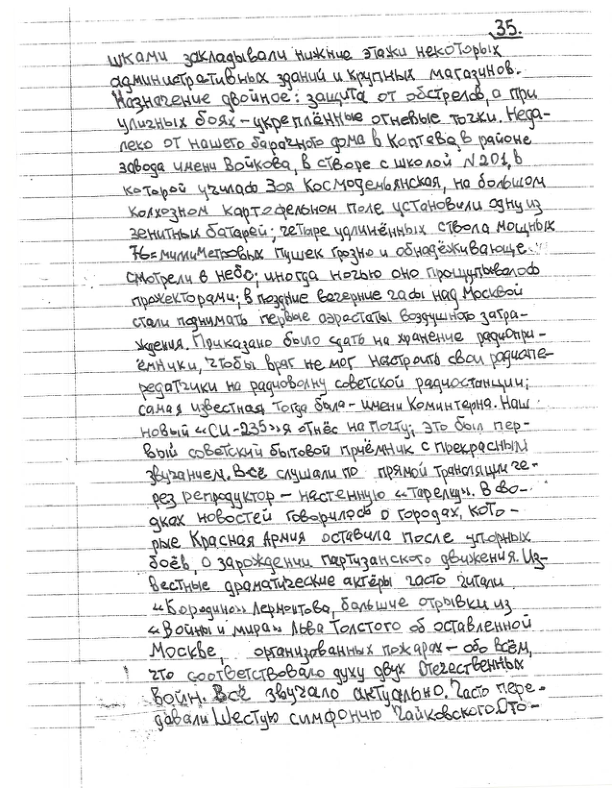 35.
шками закладывали нижние этажи некоторых
административных зданий и крупных магазинов.
Назначение двойное: защита от обстрелов, а при
уличных боях – укреплённые огневые точки. Неда-
леко от нашего барачного дома в Коптева, в районе
завода имени Войкова, в створе с школой N 201, в
которой училась Зоя Космодемьянская, на большом
колхозном картофельном поле установили одну из
зенитных батарей; четыре удлинённых ствола мощных
76=миллиметровых пушек грозно и обнадёживающе
смотрели в небо; иногда ночью оно прощупывалось
прожекторами; в поздние вечерние часы над Москвой
стали поднимать первые аэростаты воздушного загра-
ждения. Приказано было сдать на хранение радиопри-
ёмники, чтобы враг не мог настроить свои радиопе-
редатчики на радиоволну советской радиостанции;
самая известная тогда была – имени Коминтерна. Наш
новый «СИ-235» я отнёс на почту; это был пер-
вый советский бытовой приёмник с прекрасным
звучанием. Всё слушали по прямой трансляции че-
рез репродуктор – настенную «тарелку». В сво-
дках новостей говорилось о городах, кото-
рые Красная Армия оставила после упорных
боёв, о зарождении партизанского движения. Из-
вестные драматические актёры часто читали
«Бородино» Лермонтова, большие отрывки из
«Войны и мира» Льва Толстого об оставленной
Москве, организованных пожарах – обо всём,
что соответствовало духу двух Отечественных
войн. Всё звучало актуально. Часто пере-
давали Шестую симфонию Чайковского. Ото-